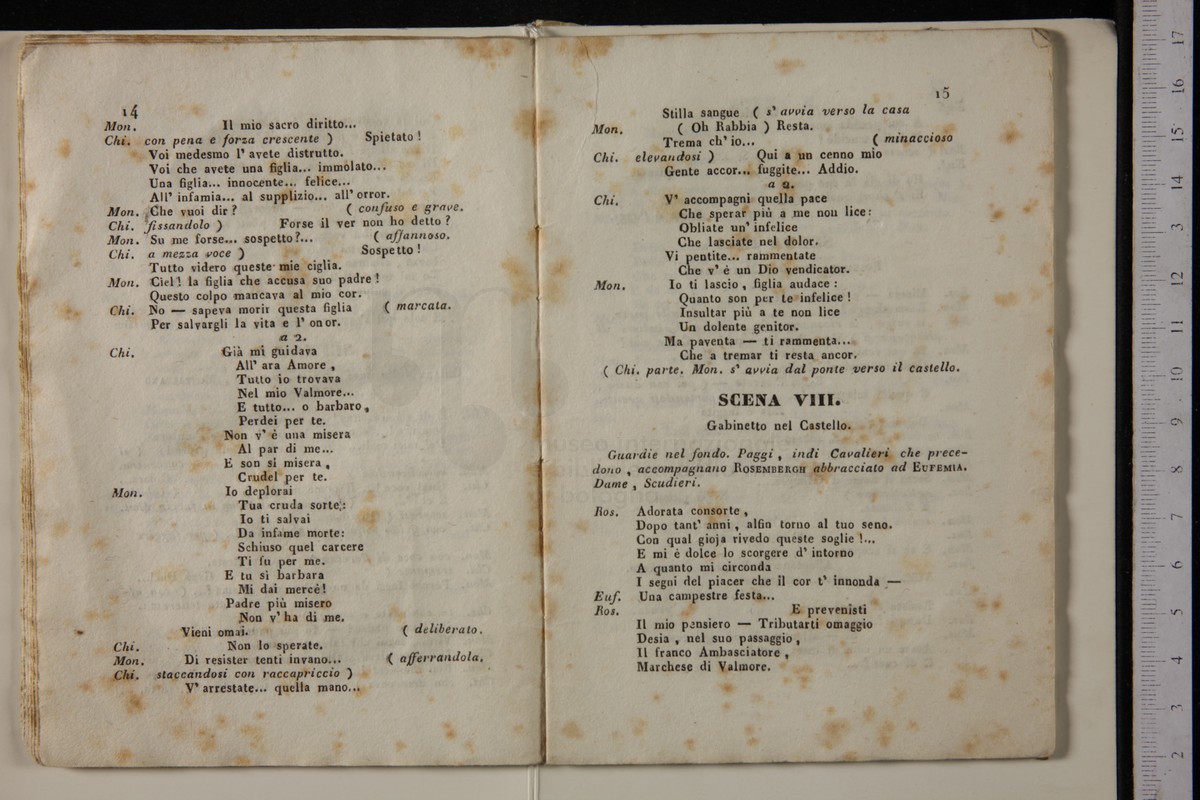 14
Mon. Il mio sacro diritto...
Chi. con pena e forza crescente ) Spietato !
Voi medesmo l' avete distrutto.
Voi che avete una figlia... immolato...
Una figlia... innocente... felice...
All' infamia... al supplizio... all' orror.
Mon. Che vuoi dir ? ( confuso e grave.
Chi. fissandolo ) Forse il ver non ho detto ?
Mon. Su me forse... sospetto ?... ( affannoso.
Chi. a mezza voce ) Sospetto !
Tutto videro queste mie ciglia.
Mon. Ciel ! la figlia che accusa suo padre !
Questo colpo mancava al mio cor.
Chi. No — sapeva morir questa figlia ( marcata.
Per salvargli la vita e l' onor.
a 2.
Chi. Già mi guidava
All' ara Amore ,
Tutto io trovava
Nel mio Valmore...
E tutto... o barbaro,
Perdei per te.
Non v' è una misera
Al par di me...
E son sì misera ,
Crudel per te.
Mon. Io deplorai
Tua cruda sorte:
Io ti salvai
Da infame morte:
Schiuso quel carcere
Ti fu per me.
E tu sì barbara
Mi dai mercè!
Padre più misero
Non v' ha di me.
Vieni omai. ( deliberato.
Chi. Non lo sperate.
Mon. Di resister tenti invano... ( afferrandola.
Chi. staccandosi con raccapriccio )
V' arrestate... quella mano...
15
Stilla sangue ( s' avvia verso la casa
Mon. ( Oh Rabbia ) Resta.
Trema ch' io... ( minaccioso
Chi. elevandosi ) Qui a un cenno mio
Gente accor... fuggite... Addio.
a 2.
Chi. V' accompagni quella pace
Che sperar più a me non lice:
Obliate un' infelice
Che lasciate nel dolor.
Vi pentite... rammentate
Che v' è un Dio vendicator.
Mon. Io ti lascio , figlia audace :
Quanto son per te infelice !
Insultar più a te non lice
Un dolente genitor.
Ma paventa — ti rammenta...
Che a tremar ti resta ancor.
( Chi. parte. Mon. s' avvia dal ponte verso il castello.
SCENA VIII.
Gabinetto nel Castello.
Guardie nel fondo. Paggi , indi Cavalieri che prece-
dono , accompagnano ROSEMBERGH abbracciato ad EUFEMIA.
Dame , Scudieri.
Ros. Adorata consorte ,
Dopo tant' anni , alfin torno al tuo seno.
Con qual gioja rivedo queste soglie !...
E mi è dolce lo scorgere d' intorno
A quanto mi circonda
I segni del piacer che il cor t' innonda —
Euf. Una campestre festa...
Ros. E prevenisti
Il mio pensiero — Tributarti omaggio
Desia , nel suo passaggio ,
Il franco Ambasciatore ,
Marchese di Valmore.
2 3 4 5 6 7 8 9 10 11 12 13 14 15 16 17